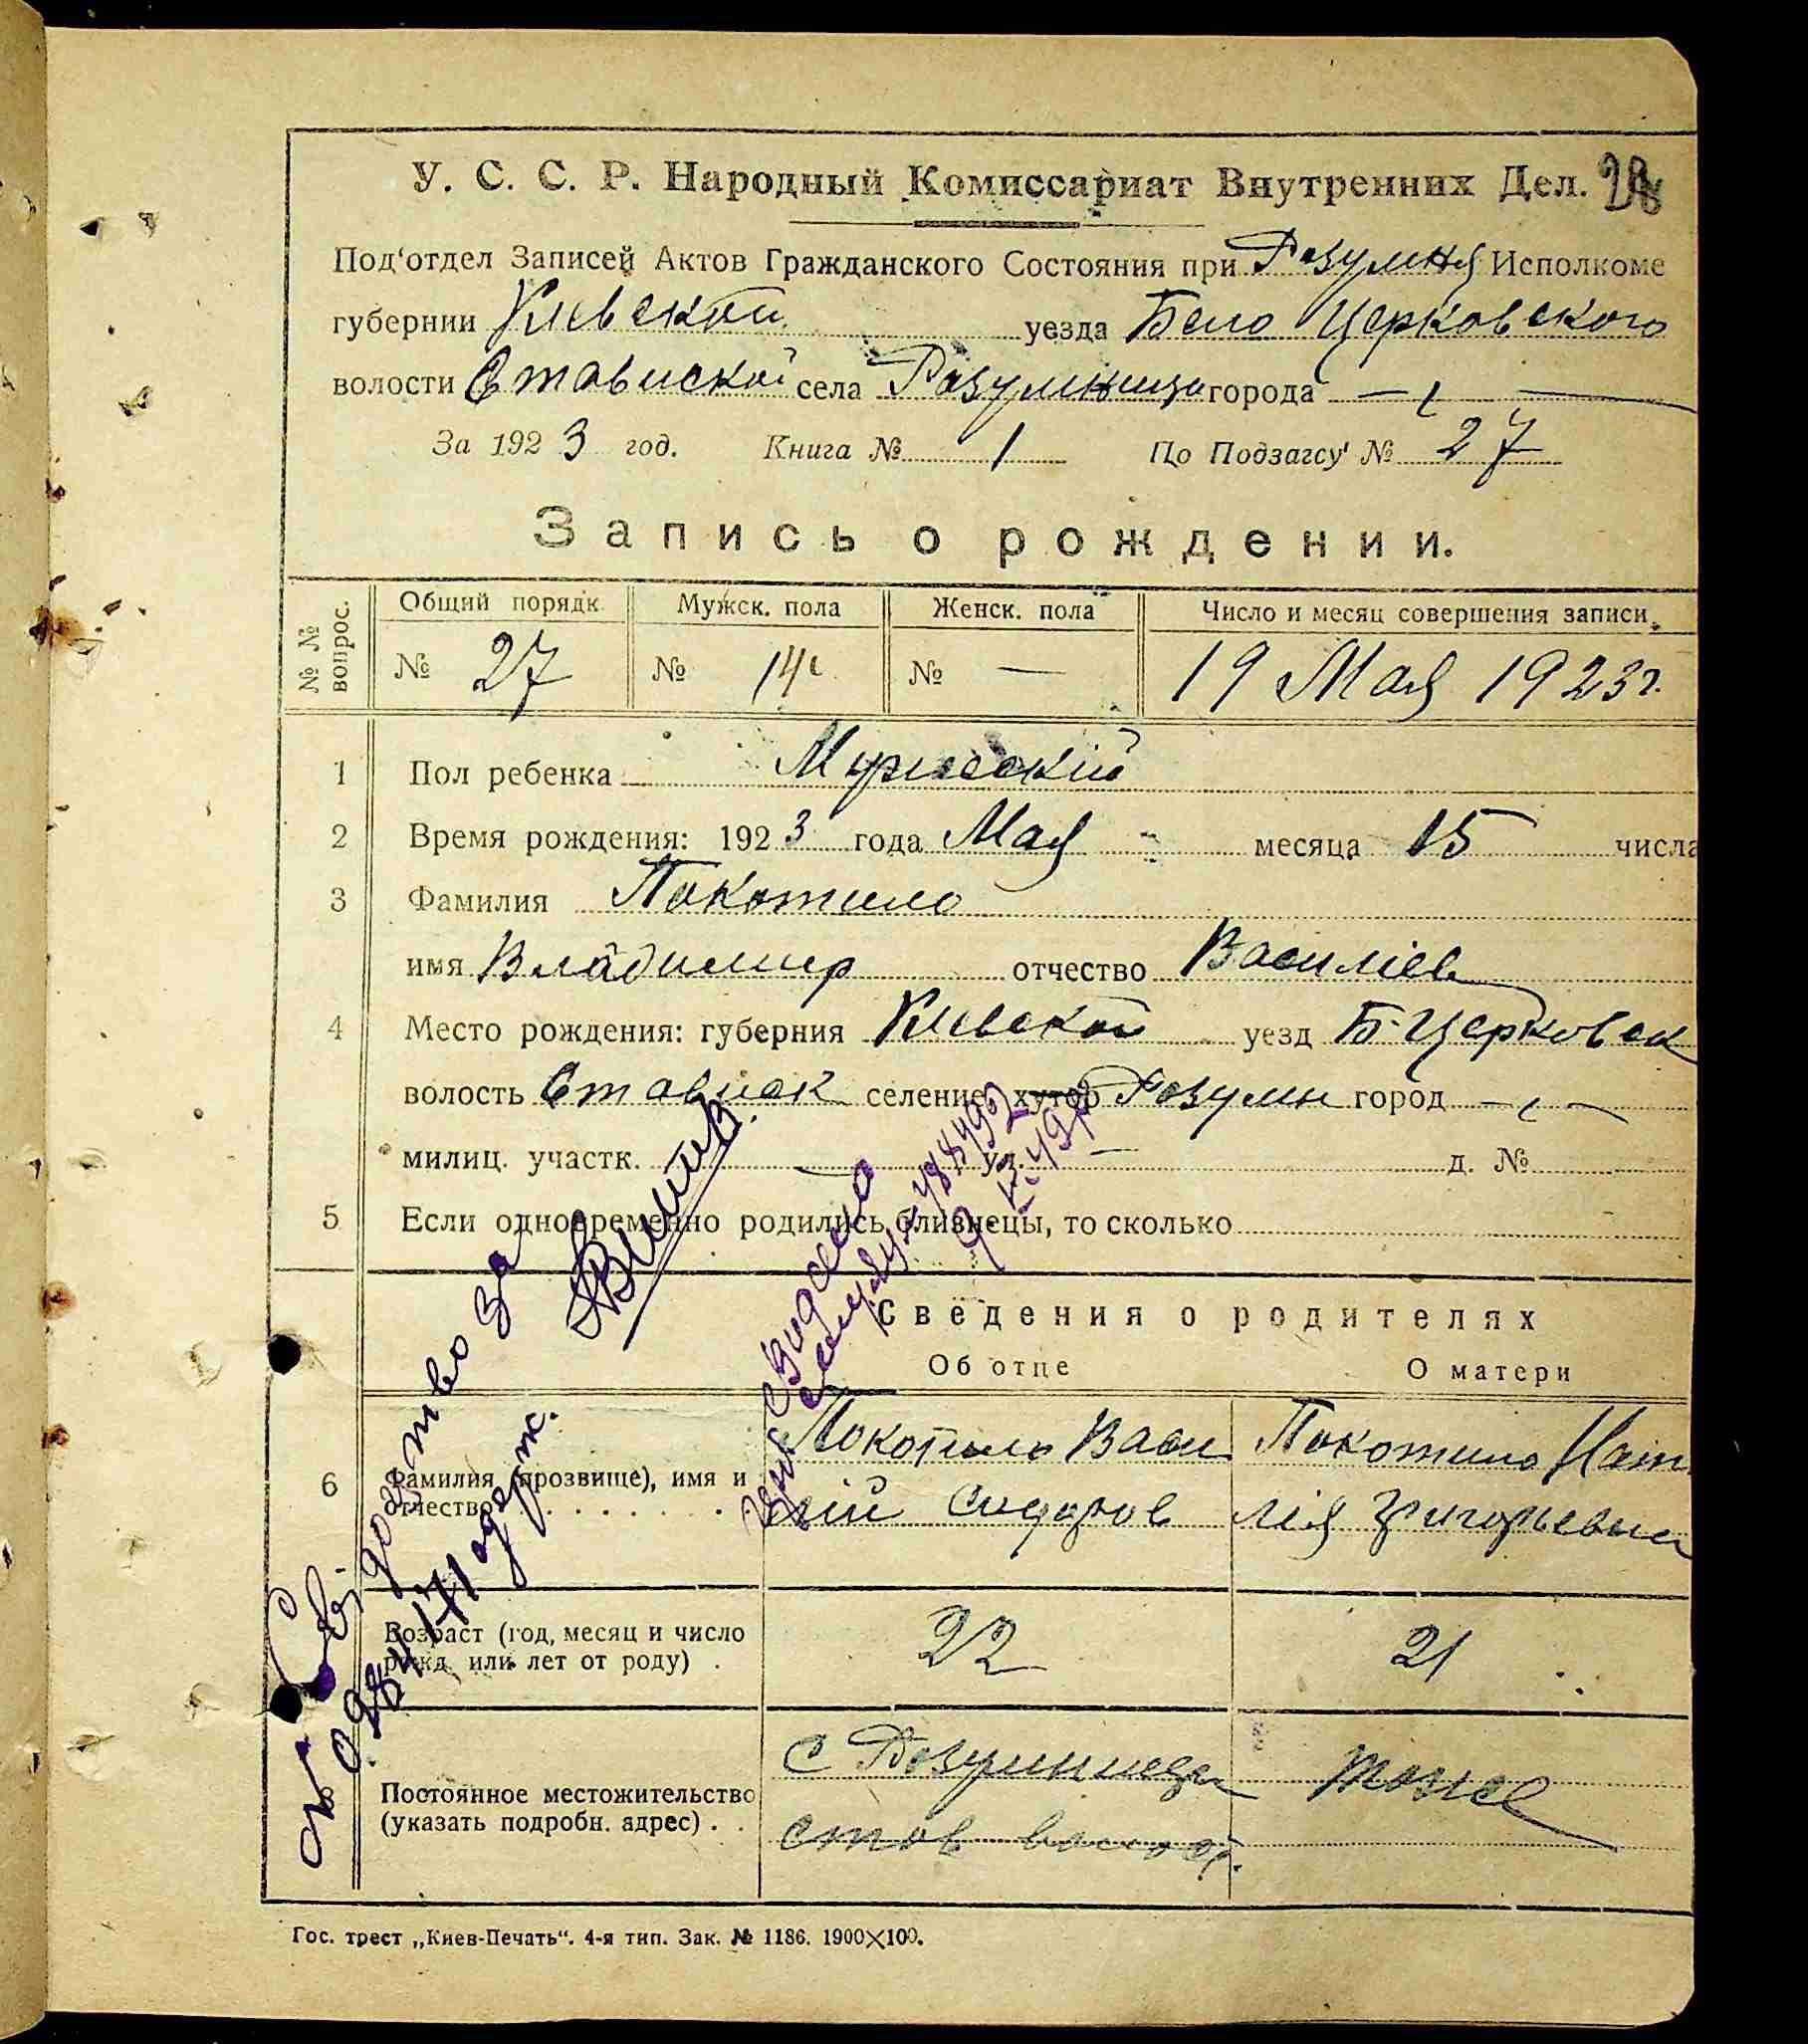 У. С. С. Р. Народный Комиссариат Внутренних Дел. 28
Под'отдел Записей Актов Гражданского Состояния при Розумня Исполкоме
губернии Киевской уезда Бело Церковского
волости Ставиской села Розумница города —
За 1923 год. Книга № 1 По Подзагсу № 27
Запись о рождении.
№ № вопрос. Общий порядк. Мужск. пола Женск. пола Число и месяц совершения записи.
№ 27 № 14 № — 19 Мая 1923 г.
1 Пол ребенка Мужеский
2 Время рождения: 1923 года Мая месяца 15 числа
3 Фамилия Покотило
имя Владимир отчество Василіев
4 Место рождения: губерния Киевской уезд Б-Церковск
волость Стависк селение, хутор Розумн город —
милиц. участк. — ул. — д. №
5 Если одновременно родились близнецы, то сколько
Сведения о родителях
Об отце О матери
6 Фамилия (прозвище), имя и отчество
Покотило Васи
лій Сидоров
Покотило Ната
лія Григорьевна
Возраст (год, месяц и число рожд. или лет от роду) . 22 21
Постоянное местожительство (указать подробн. адрес) . .
с Розумница
Став волост.
тоже
Свідоцтво за
№ 098417 одерж.
Гос. трест „Киев-Печать“. 4-я тип. Зак. № 1186. 1900×100.